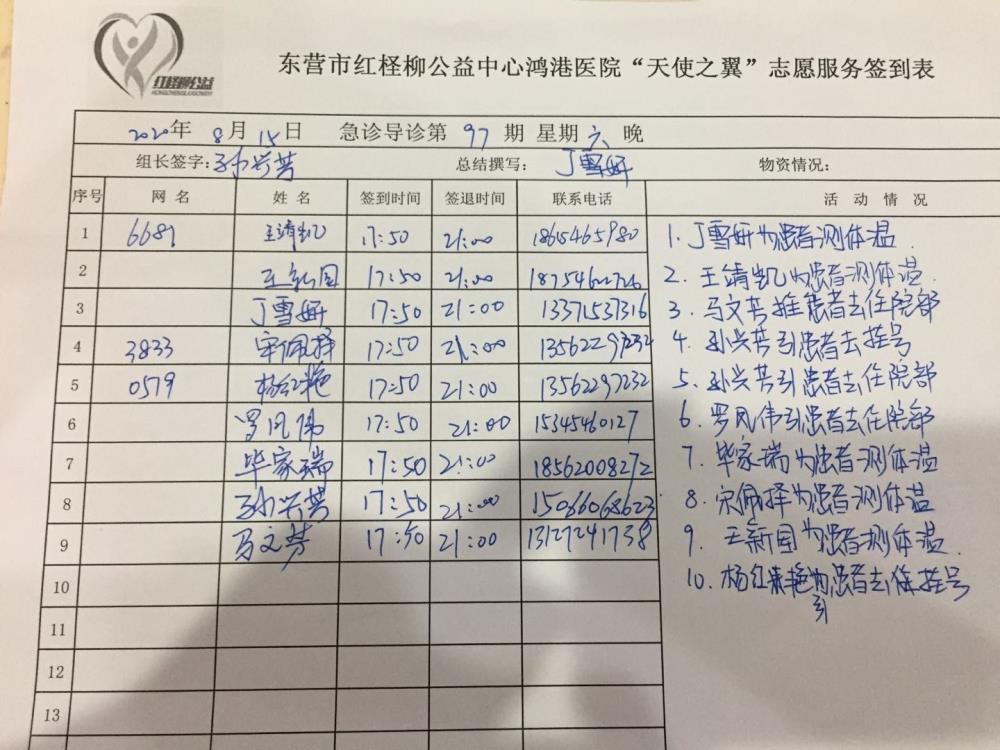 红柽柳公益
东营市红柽柳公益中心鸿港医院“天使之翼”志愿服务签到表
2020年 8月 15日 急诊导诊第 97 期 星期 六 晚
组长签字:孙兴芳 总结撰写: 丁雪妍 物资情况:
序号 网名 姓名 签到时间 签退时间 联系电话 活动情况
1 6681 王靖凯 17:50 21:00 18615465980 1.丁雪妍为患者测体温.
2 王新国 17:50 21:00 18754622726 2.王靖凯为患者测体温.
3 丁雪妍 17:50 21:00 13371537316 3.马文芳推患者去住院部
4 3833 宋佩择 17:50 21:00 13562297232 4.孙兴芳引患者去挂号
5 0579 杨红艳 17:50 21:00 13562297232 5.孙兴芳引患者去住院部
6 罗凤伟 17:50 21:00 15345460127 6.罗凤伟引患者去住院部
7 毕家瑞 17:50 21:00 18562008272 7.毕家瑞为患者测体温
8 孙兴芳 17:50 21:00 15066068623 8.宋佩择为患者测体温
9 马文芳 17:50 21:00 13127241738 9.王新国为患者测体温.
10 10.杨红艳引患者去挂号
11
12
13